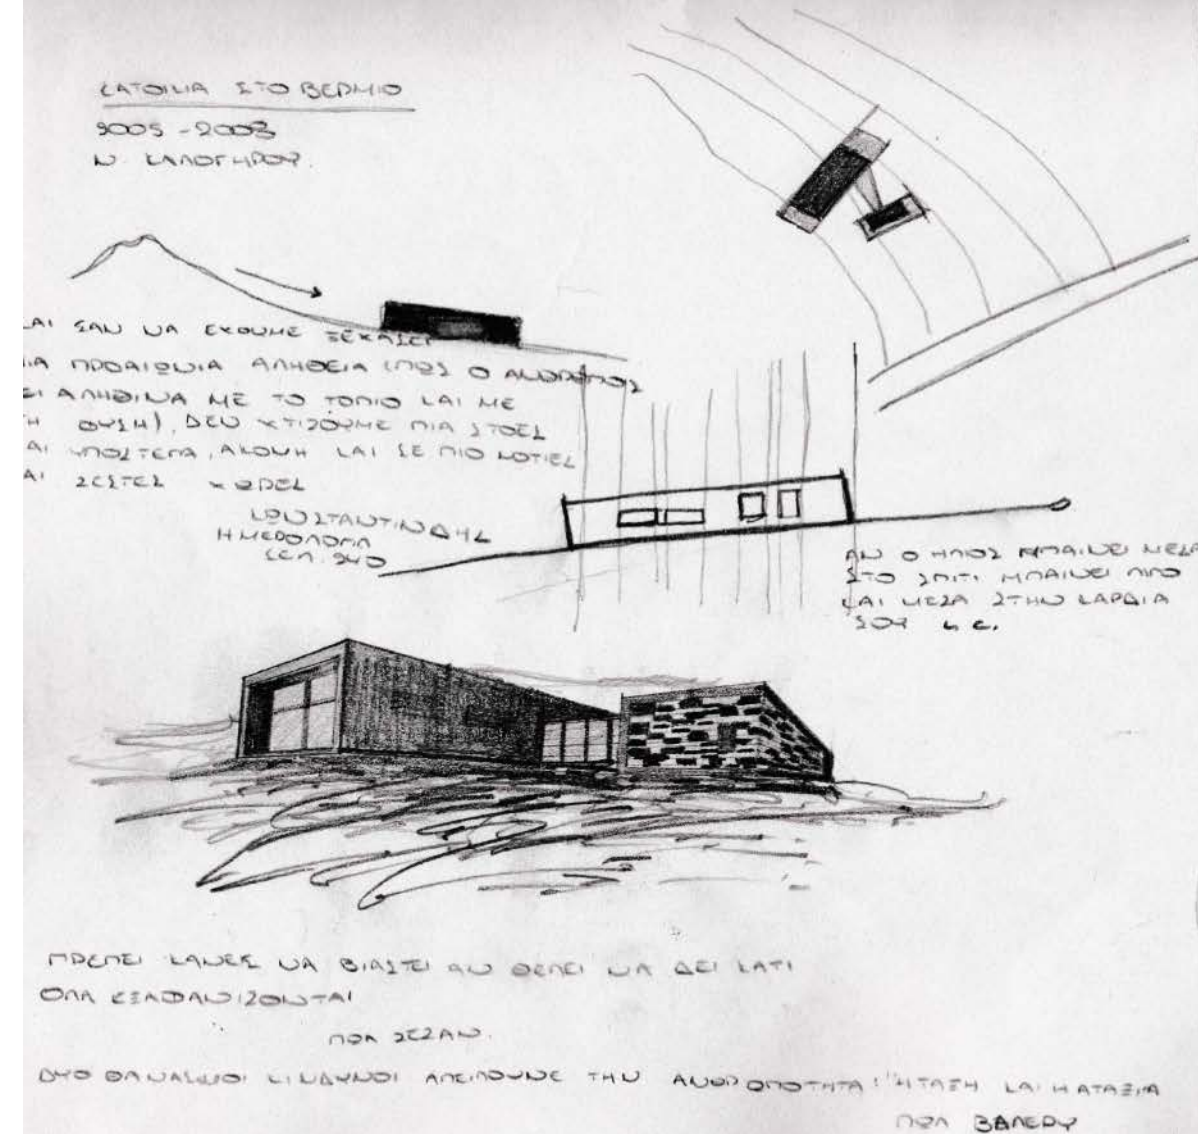 ΚΑΤΟΙΚΙΑ ΣΤΟ ΒΕΡΜΙΟ
2005 - 2008
Ν. ΚΑΛΟΓΗΡΟΥ.
ΑΙ ΣΑΝ ΝΑ ΕΧΟΥΜΕ ΞΕΧΑΣΕΙ
ΙΑ ΠΡΟΑΙΩΝΙΑ ΑΛΗΘΕΙΑ (ΠΩΣ Ο ΑΝΘΡΩΠΟΣ
ΕΙ ΑΛΗΘΙΝΑ ΜΕ ΤΟ ΤΟΠΙΟ ΚΑΙ ΜΕ
Η ΦΥΣΗ), ΔΕΝ ΧΤΙΖΟΥΜΕ ΠΙΑ ΣΤΟΕΣ
ΑΙ ΥΠΟΣΤΕΓΑ, ΑΚΟΜΗ ΚΑΙ ΣΕ ΠΙΟ ΝΟΤΙΕΣ
ΑΙ ΖΕΣΤΕΣ ΧΩΡΕΣ
ΚΩΝΣΤΑΝΤΙΝΙΔΗΣ
ΗΜΕΡΟΛΟΓΙΑ
ΣΕΛ. 240
ΑΝ Ο ΗΛΙΟΣ ΜΠΑΙΝΕΙ ΜΕΣΑ
ΣΤΟ ΣΠΙΤΙ ΜΠΑΙΝΕΙ ΛΙΓΟ
ΚΑΙ ΜΕΣΑ ΣΤΗΝ ΚΑΡΔΙΑ
ΣΟΥ L.C.
ΠΡΕΠΕΙ ΚΑΝΕΙΣ ΝΑ ΒΙΑΣΤΕΙ ΑΝ ΘΕΛΕΙ ΝΑ ΔΕΙ ΚΑΤΙ
ΟΛΑ ΕΞΑΦΑΝΙΖΟΝΤΑΙ
ΠΩΛ ΣΕΖΑΝ.
ΔΥΟ ΘΑΝΑΣΙΜΟΙ ΚΙΝΔΥΝΟΙ ΑΠΕΙΛΟΥΝΕ ΤΗΝ ΑΝΘΡΩΠΟΤΗΤΑ: Η ΤΑΞΗ ΚΑΙ Η ΑΤΑΞΙΑ
ΠΩΛ ΒΑΛΕΡΥ